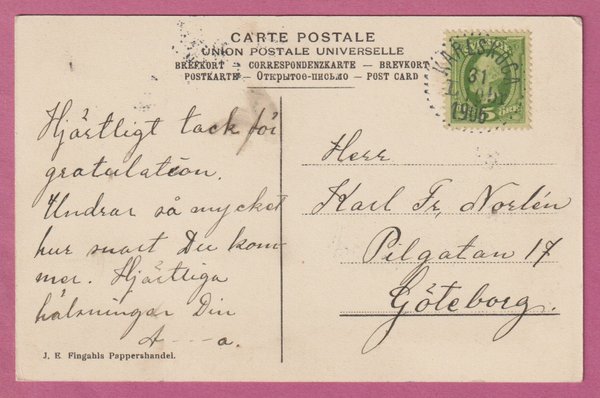 CARTE POSTALE
UNION POSTALE UNIVERSELLE
BREFKORT - CORRESPONDENZKARTE - BREVKORT
POSTKARTE - Открытое письмо - POST CARD
KARLSKOGA
31
1906
Hjärtligt tack för
gratulation.
Undrar så mycket
hur snart Du kom-
mer. Hjärtliga
hälsningar Din
A - - - a.
J. E. Fingahls Pappershandel.
Herr
Karl Fr. Norlén
Pilgatan 17
Göteborg.